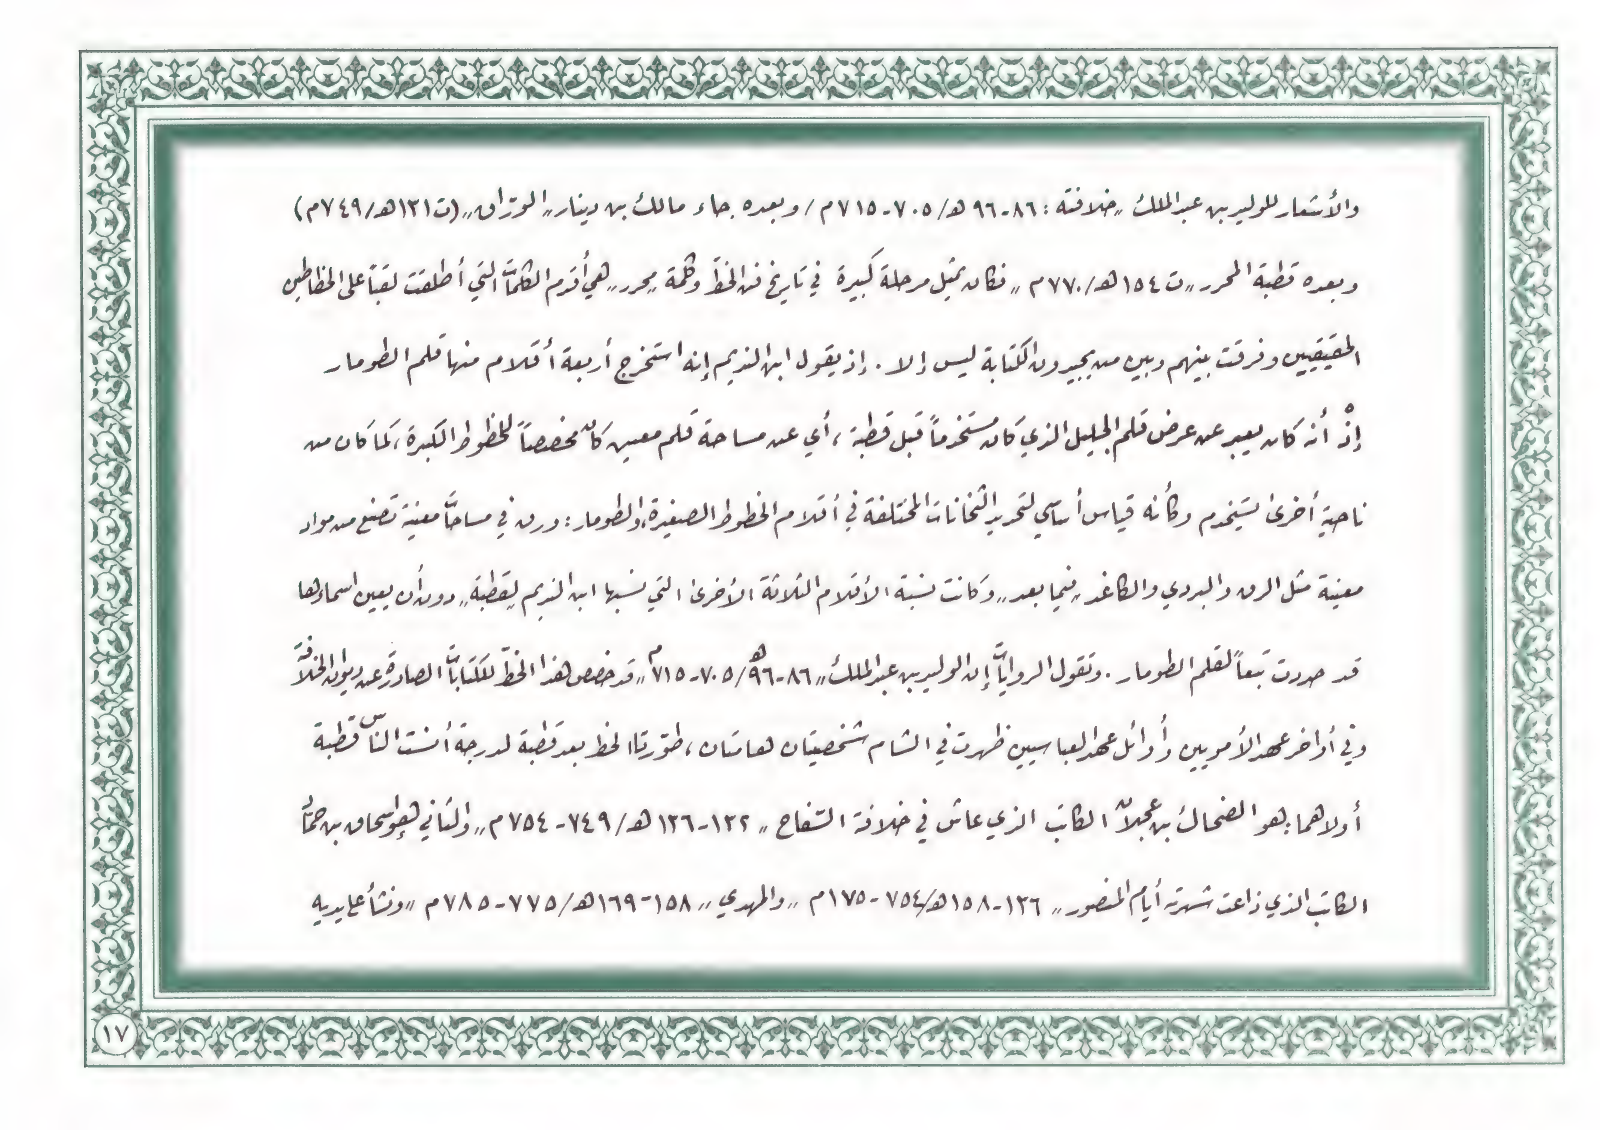 والأشعار للوليد بن عبد الملك „خلافته : ٨٦-٩٦ هـ/٧٠٥-٧١٥م / وبعده جاء مالك بن دينار „الورّاق„ (ت١٣١هـ/٧٤٩م)
وبعده قطبة المحرر „ت ١٥٤هـ/٧٧٠م „ فكان يمثل مرحلة كبيرة في تاريخ فن الخطّ وكلمة „محرر„ هي أقدم الكلمات التي أطلقت لقباً على الخطاطين
الحقيقيين وفرقت بينهم وبين من يجيدون الكتابة ليس إلا . إذ يقول ابن النديم إنه استخرج أربعة أقلام منها قلم الطومار
إذْ أنه كان يعبر عن عرض قلم الجليل الذي كان مستخدماً قبل قطبة ، أي عن مساحة قلم معين كان مخصصاً للخطوط الكبيرة ، كما كان من
ناحية أخرى يستخدم وكأنه قياس أساسي لتحديد الثخانات المختلفة في أقلام الخطوط الصغيرة، والطومار : ورق في مساحات معينة تصنع من مواد
معينة مثل الرق والبردي والكاغد „فيما بعد„ وكانت نسبة الأقلام الثلاثة الأخرى التي نسبها ابن النديم لقطبة„ دون أن يعين اسماءها
قد حددت تبعاً لقلم الطومار . وتقول الروايات إن الوليد بن عبد الملك „ ٨٦-٩٦هـ/٧٠٥-٧١٥م „ قد خصص هذا الخطّ للكتابات الصادرة عن ديوان الخلافة
وفي أواخر عهد الأمويين وأوائل عهد العباسيين ظهرت في الشام شخصيتان هامتان ، طوّرتا الخط بعد قطبة لدرجة أنست الناس قطبة
أولاهما : هو الضحاك بن عجلان الكاتب الذي عاش في خلافة السّفاح „ ١٣٢-١٣٦هـ/٧٤٩-٧٥٤م „ والثاني هو إسحاق بن حمّاد
الكاتب الذي ذاعت شهرته أيام المنصور „ ١٣٦-١٥٨هـ/٧٥٤-١٧٥م „ والمهدي „ ١٥٨-١٦٩هـ/٧٧٥-٧٨٥م „ ونشأ على يديه
١٧